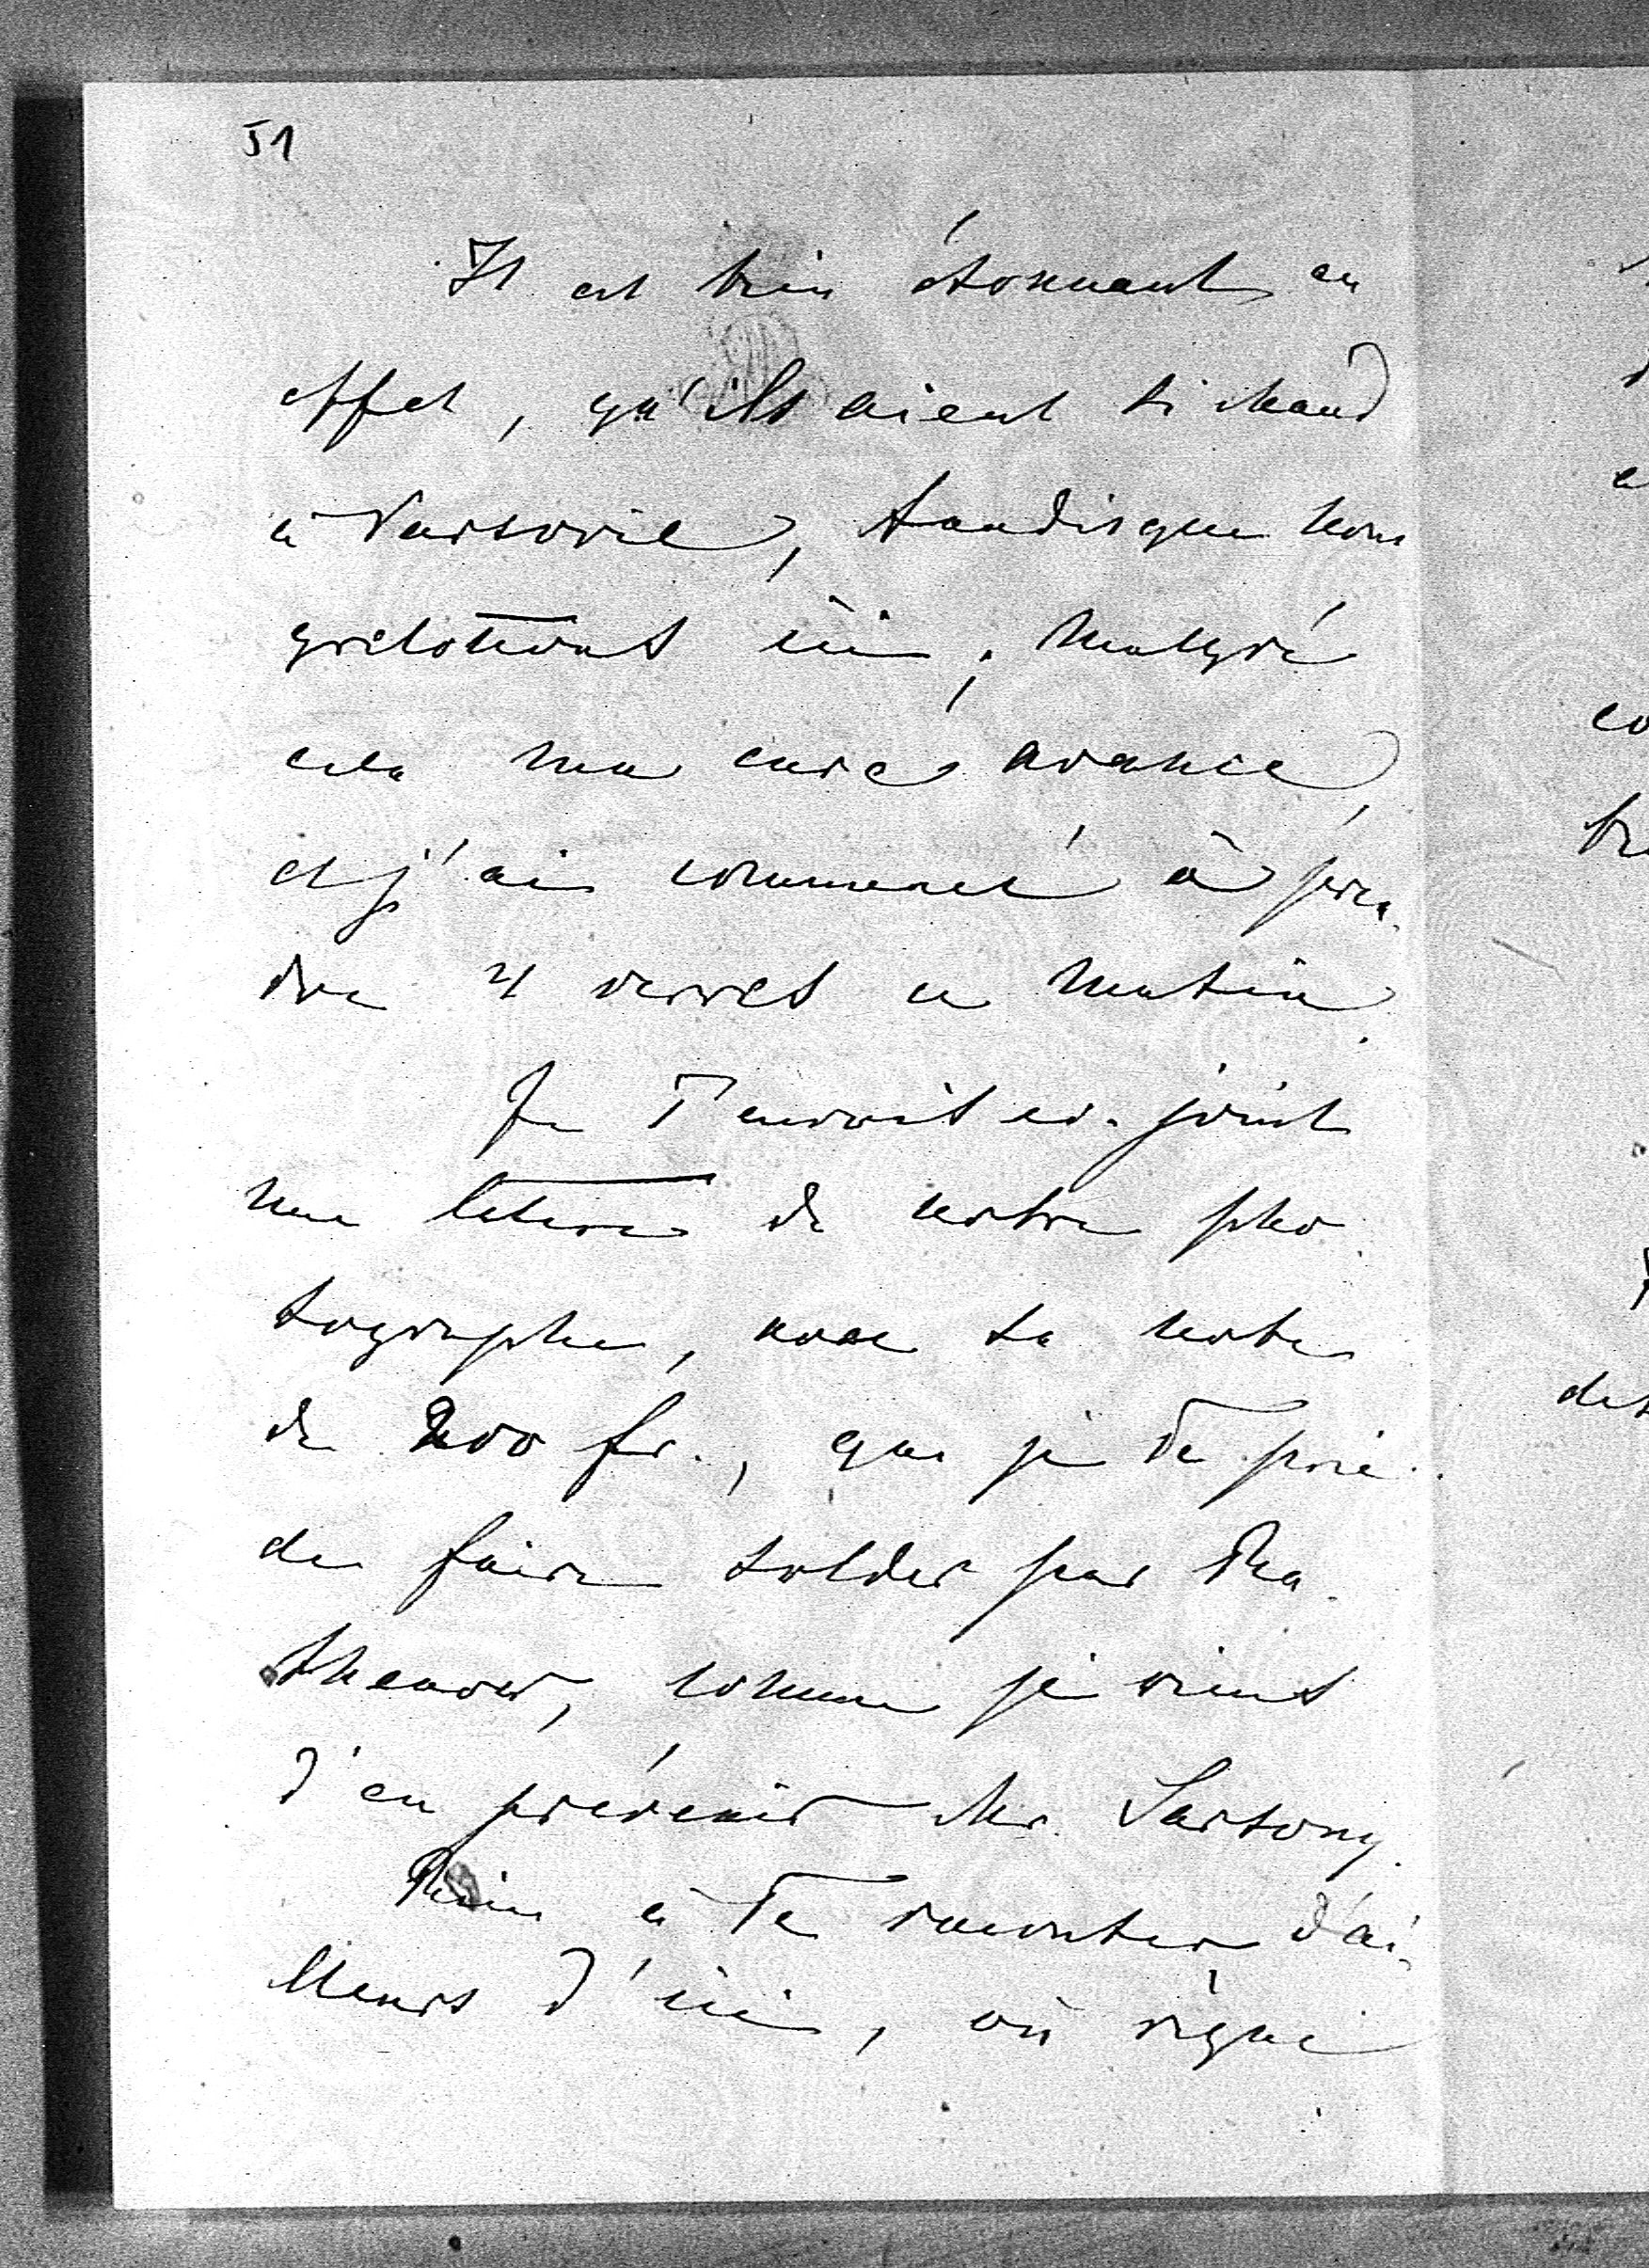 51
Il est bien étonnant en
effet, qu'ils aient si chaud
à Varsovie, tandisque nous
grelottons ici; malgré
cela ma cure avance,
et j'ai commencé à pren-
dre 4 verres ce matin.
Je T'envois ci-joint
une lettre de notre pho-
tographe, avec sa note
de 200 fr., que je Te prie
de faire solder par Ra-
thenow, comme je viens
d'en prévenir Mr. Sartony.
Rien à Te raconter d'ai-
lleurs d'ici, où règne